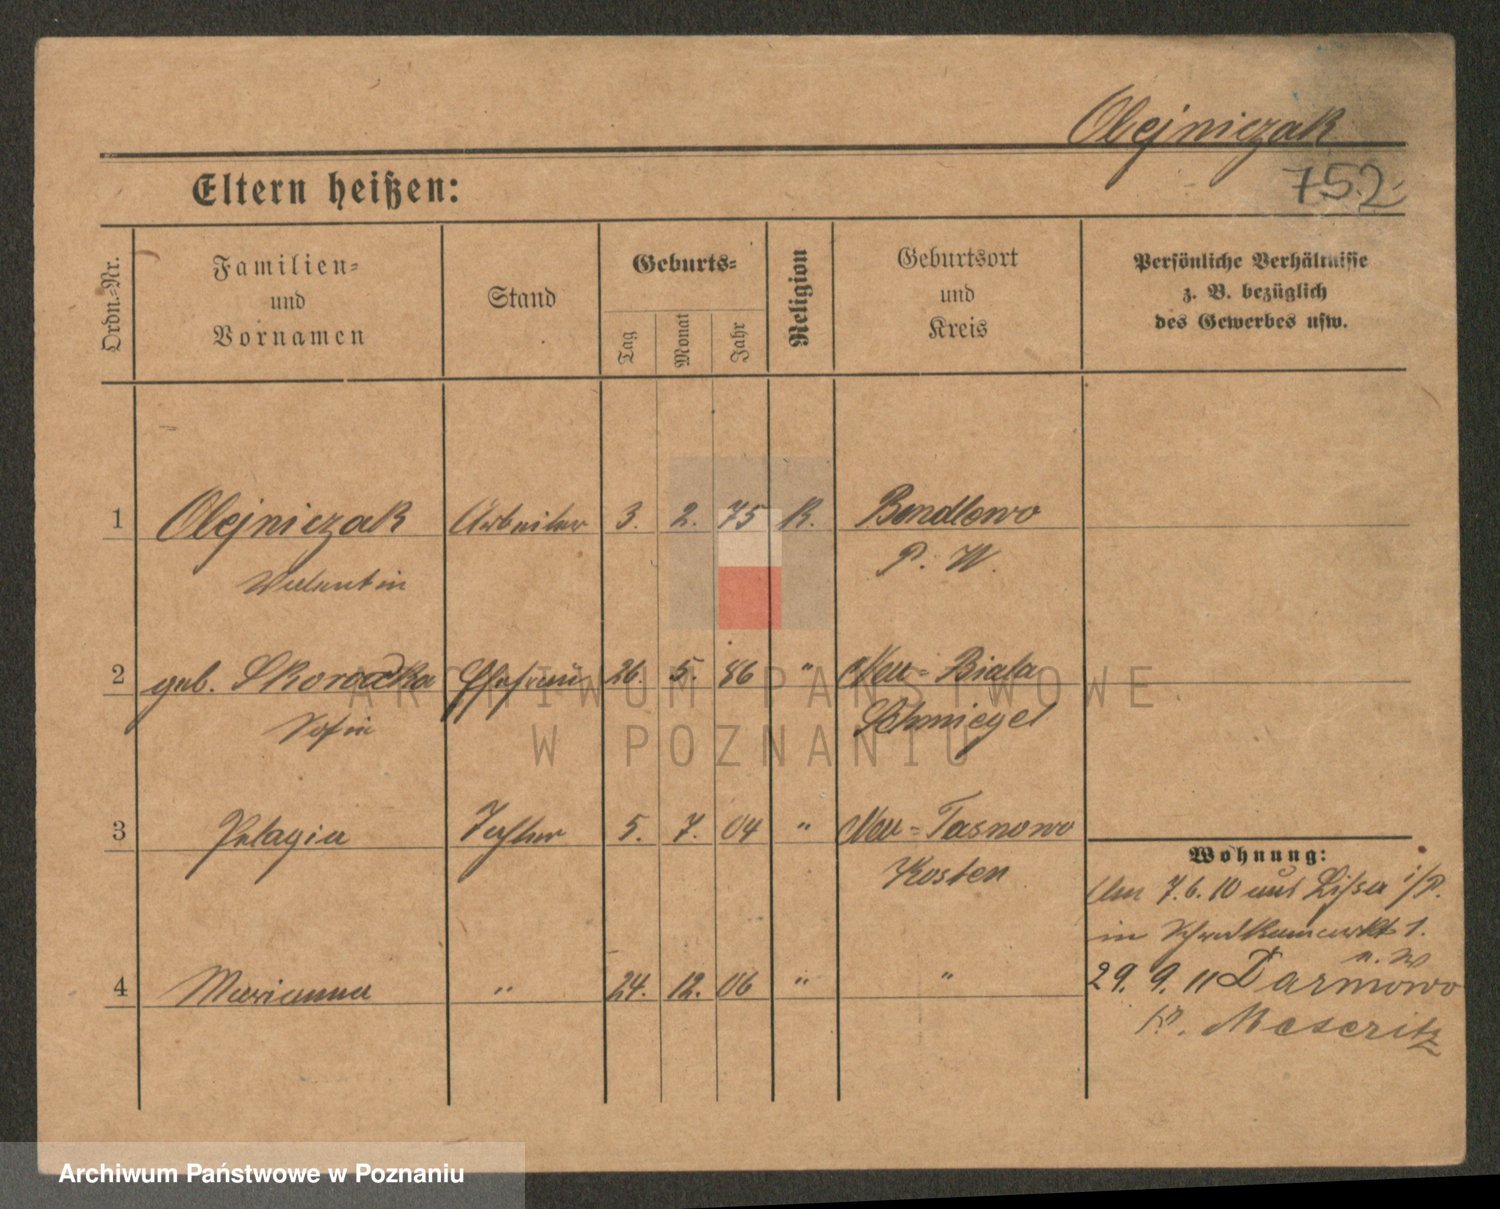 Olejniczak
752
Eltern heißen:
Ordn.-Nr.
Familien-
und
Vornamen
Stand
Geburts-
Tag
Monat
Jahr
Religion
Geburtsort
und
Kreis
Persönliche Verhältnisse
z. B. bezüglich
des Gewerbes usw.
1 Olejniczak Arbeiter 3. 2. 75 K. Bendlewo
Valentin P. W.
2 geb. Skoraczka Ehefrau 26. 5. 86 " Neu-Biala
Sofie Schmiegel
3 Pelagia Tochter 5. 7. 04 " Neu-Tasnowo
Kosten
4 Marianna " 24. 12. 06 " "
Wohnung:
Am 7.6.10 aus Lissa i/P.
in 1.
n. W
29. 9. 11 Darmowo
Kr. Meseritz
ARCHIWUM PAŃSTWOWE
W POZNANIU
Archiwum Państwowe w Poznaniu